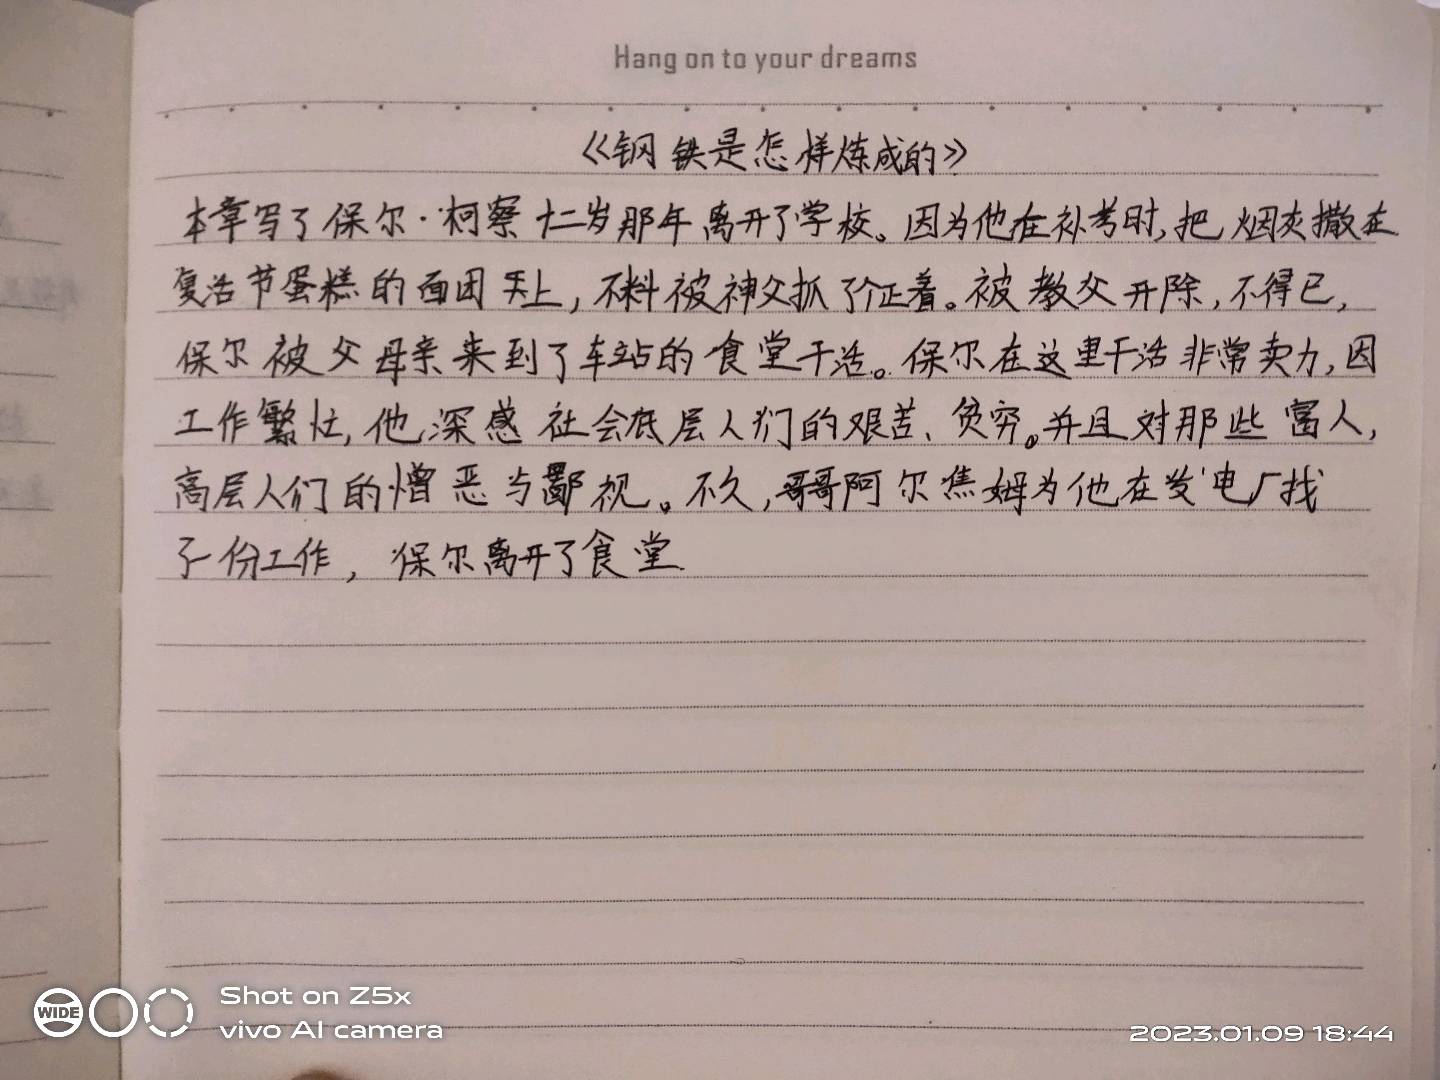 Hang on to your dreams
《钢铁是怎样炼成的》
本章写了保尔·柯察十二岁那年离开了学校。因为他在补考时,把烟灰撒在
复活节蛋糕的面团天上,不料被神父抓了个正着。被教父开除,不得已,
保尔被父母亲来到了车站的食堂干活。保尔在这里干活非常卖力,因
工作繁忙,他深感社会底层人们的艰苦、贫穷。并且对那些富人,
高层人们的憎恶与鄙视。不久,哥哥阿尔焦姆为他在发电厂找
了一份工作,保尔离开了食堂.
WIDE
Shot on Z5x
vivo AI camera
2023.01.09 18:44